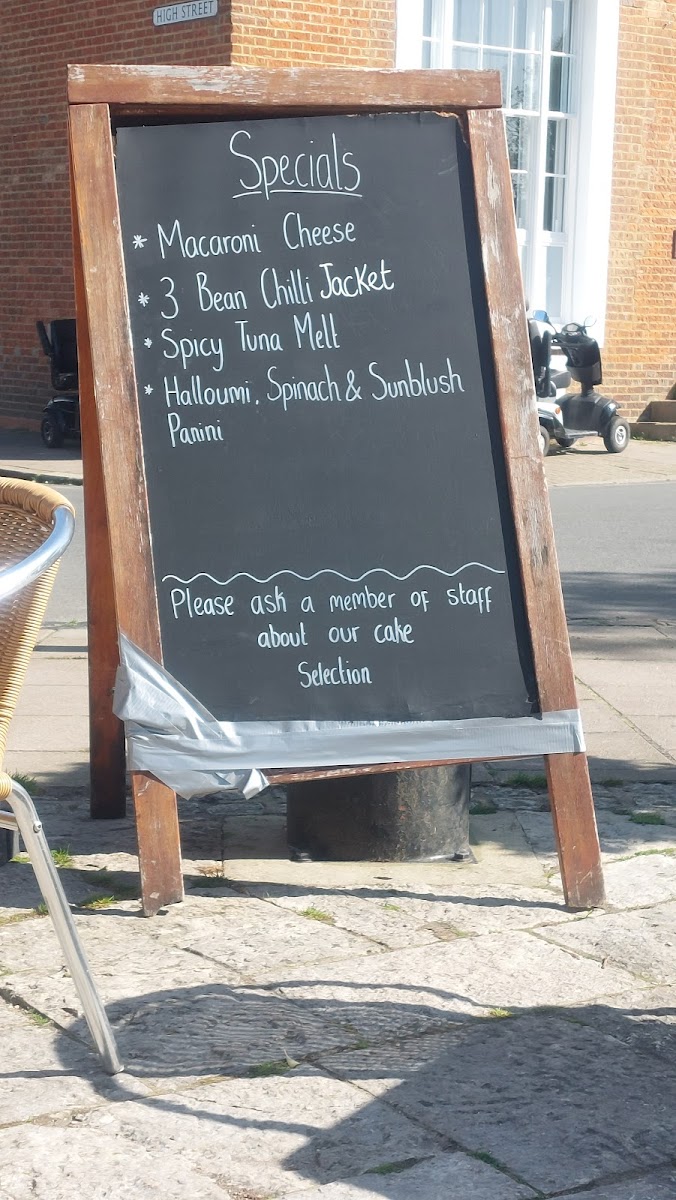 HIGH STREET
Specials
* Macaroni Cheese
* 3 Bean Chilli Jacket
* Spicy Tuna Melt
* Halloumi, Spinach & Sunblush
Panini
Please ask a member of staff
about our cake
Selection